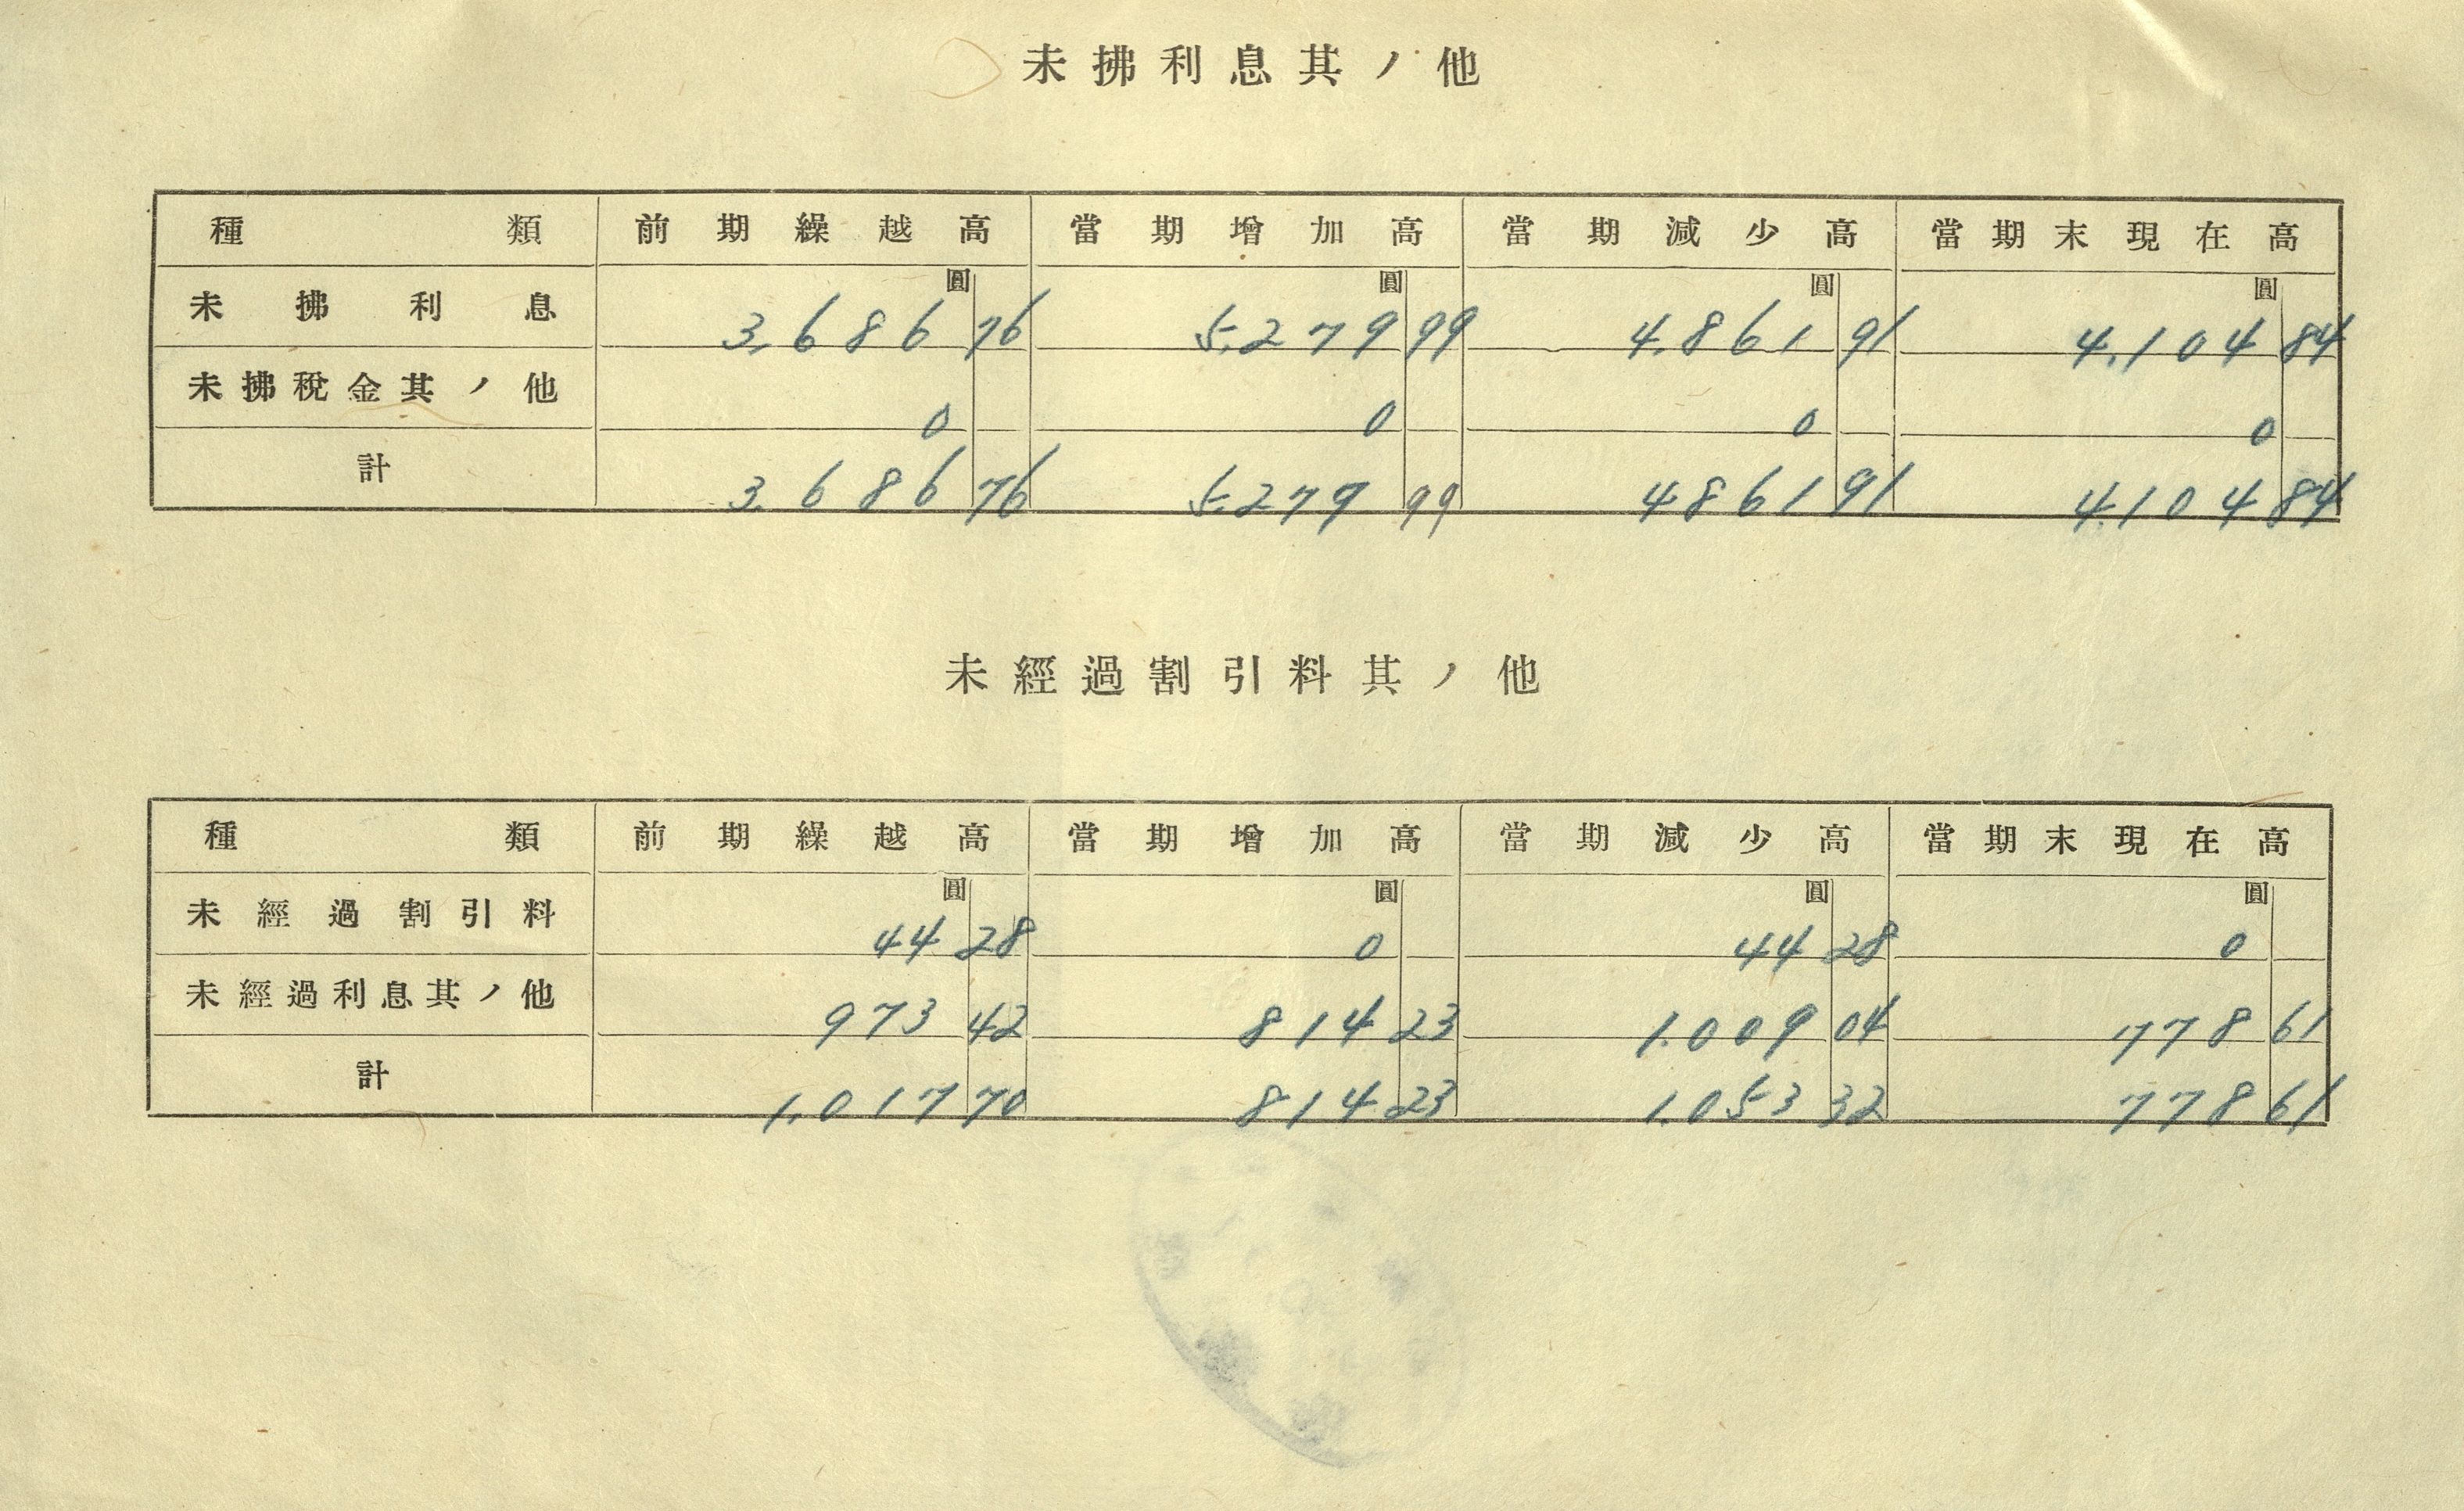 未拂利息其ノ他
種類 前期繰越高 當期增加高 當期減少高 當期末現在高
圓 圓 圓 圓
未拂利息 3,686 76 5,279 99 4,861 91 4,104 84
未拂稅金其ノ他 0 0 0 0
計 3,686 76 5,279 99 4861 91 4,104 84
未經過割引料其ノ他
種類 前期繰越高 當期增加高 當期減少高 當期末現在高
圓 圓 圓 圓
未經過割引料 44 28 0 44 28 0
未經過利息其ノ他 973 42 814 23 1,009 04 778 61
計 1,017 70 814 23 1,053 32 778 61